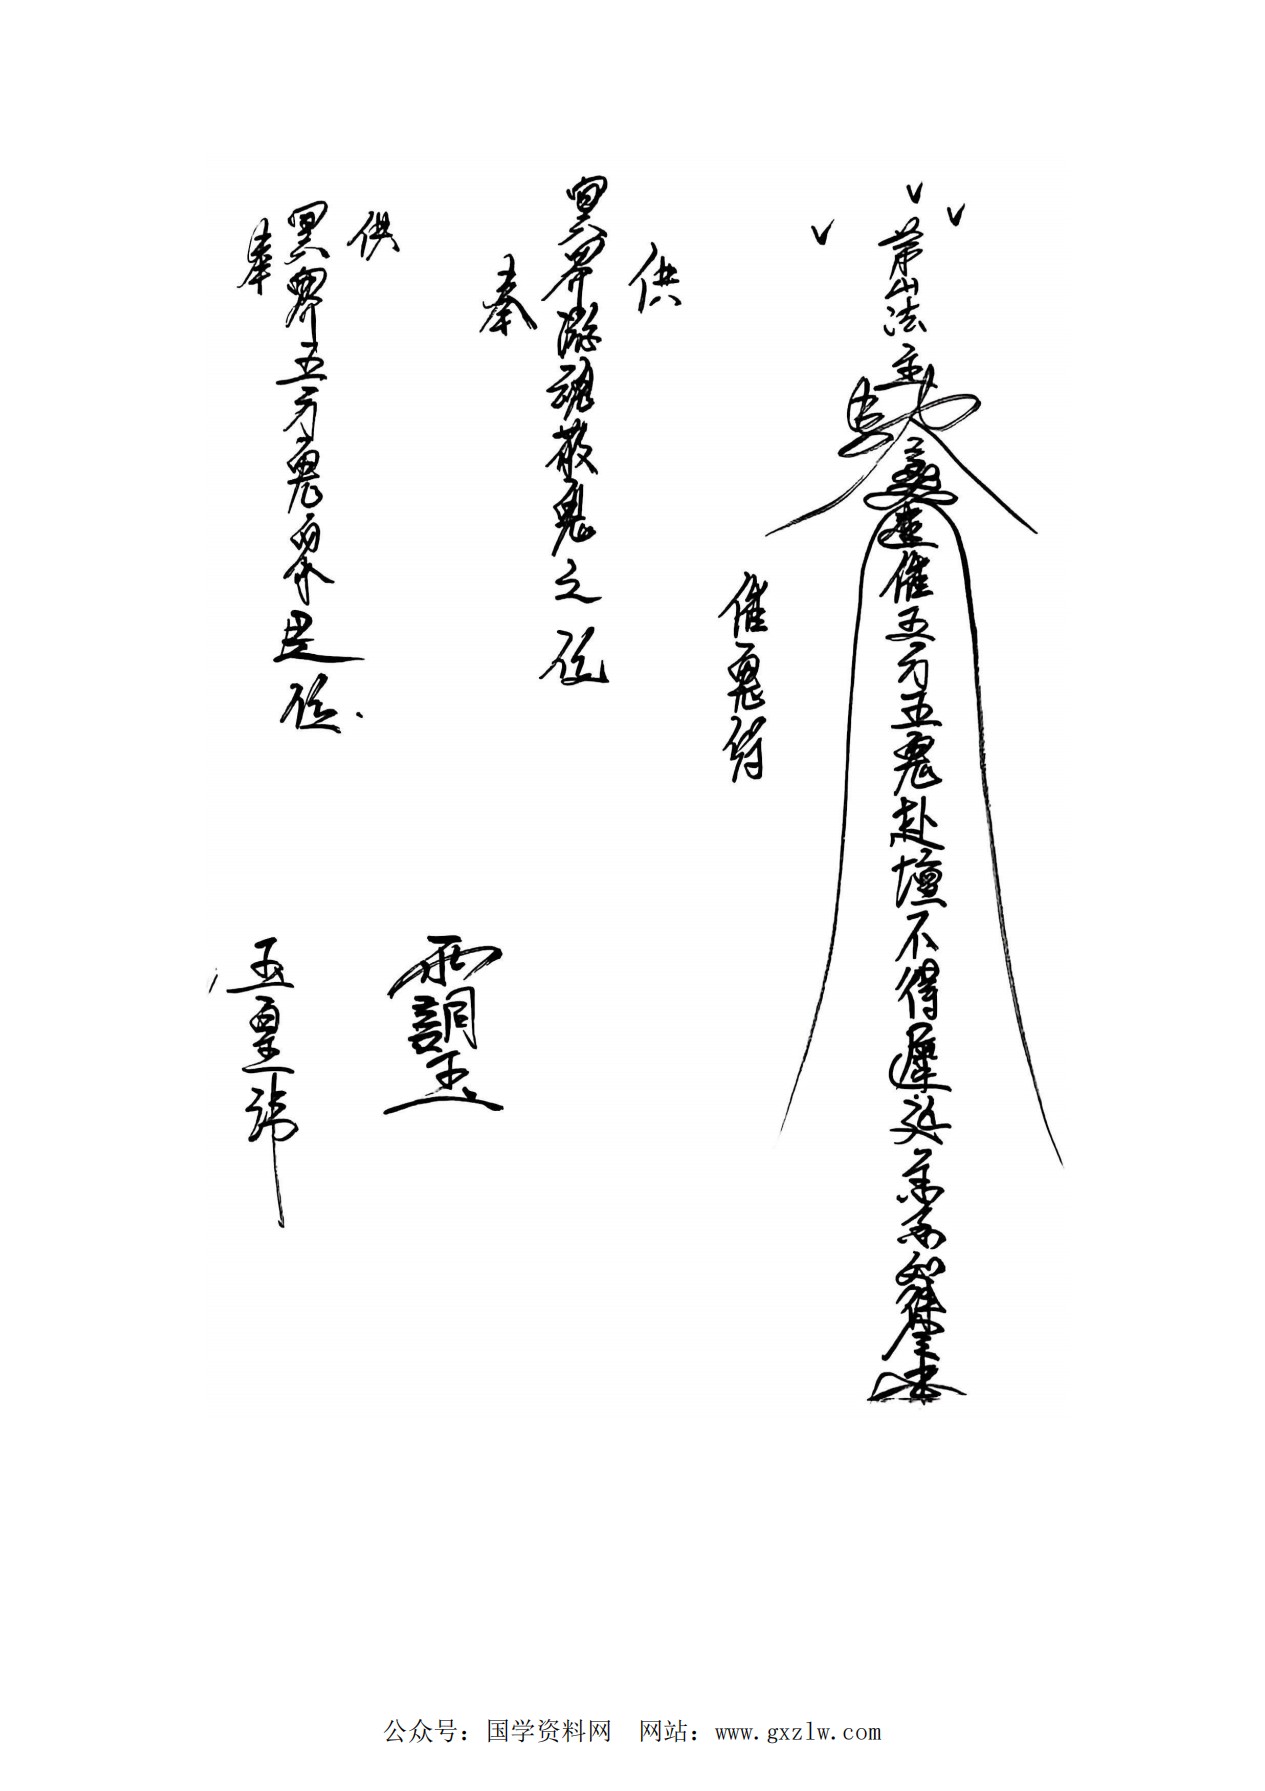 茅山法主
催五方五鬼赴壇不得遲延
催鬼符
供
奉
冥界游魂散鬼之位
供
奉
冥界五方鬼眾是位
玉皇諱
公众号：国学资料网 网站：www.gxzlw.com